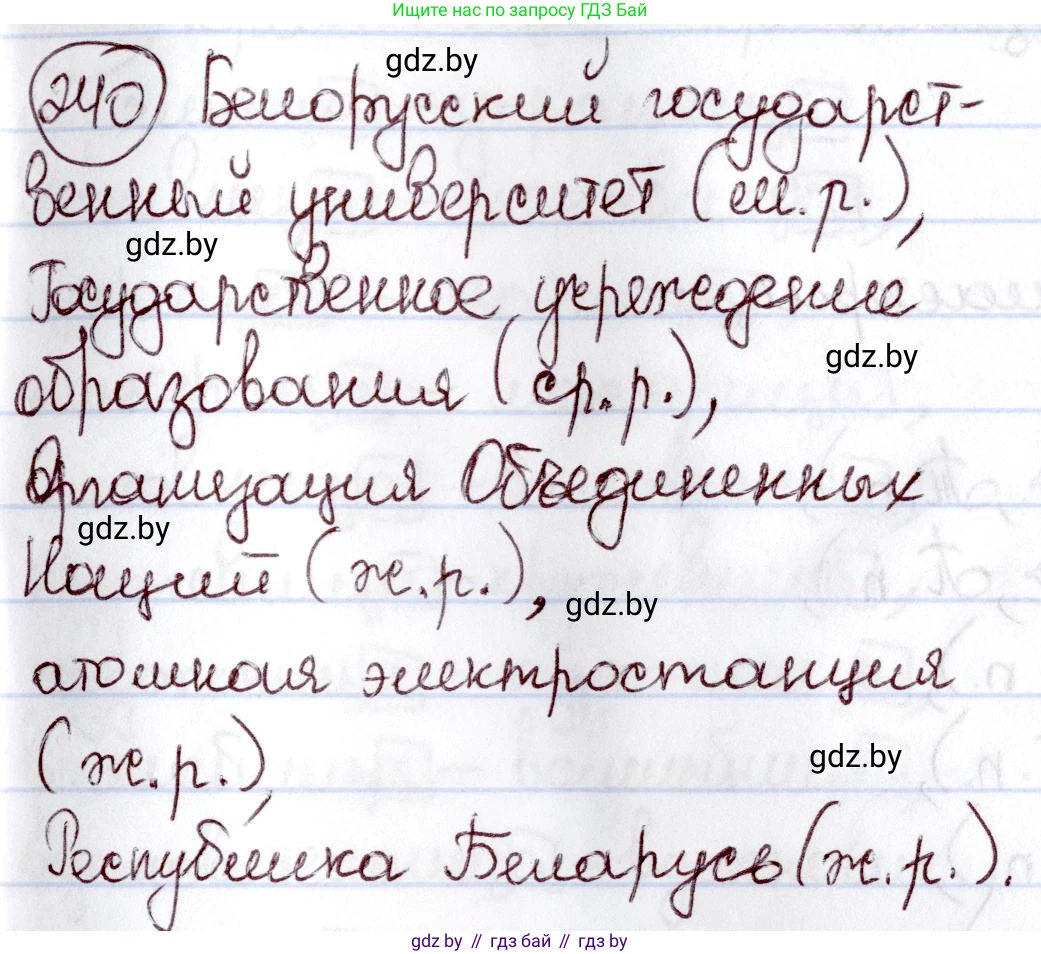 Ищите нас по запросу ГДЗ Бай
240 Белорусский государст-
gdz.by
венный университет (м.р.),
gdz.by
Государственное учреждение
gdz.by
образования (ср.р.),
Организация Объединенных
gdz.by
Наций (ж.р.),
gdz.by
атомная электростанция
(ж.р.),
gdz.by
Республика Беларусь (ж.р.).
gdz.by // гдз бай // gdz.by